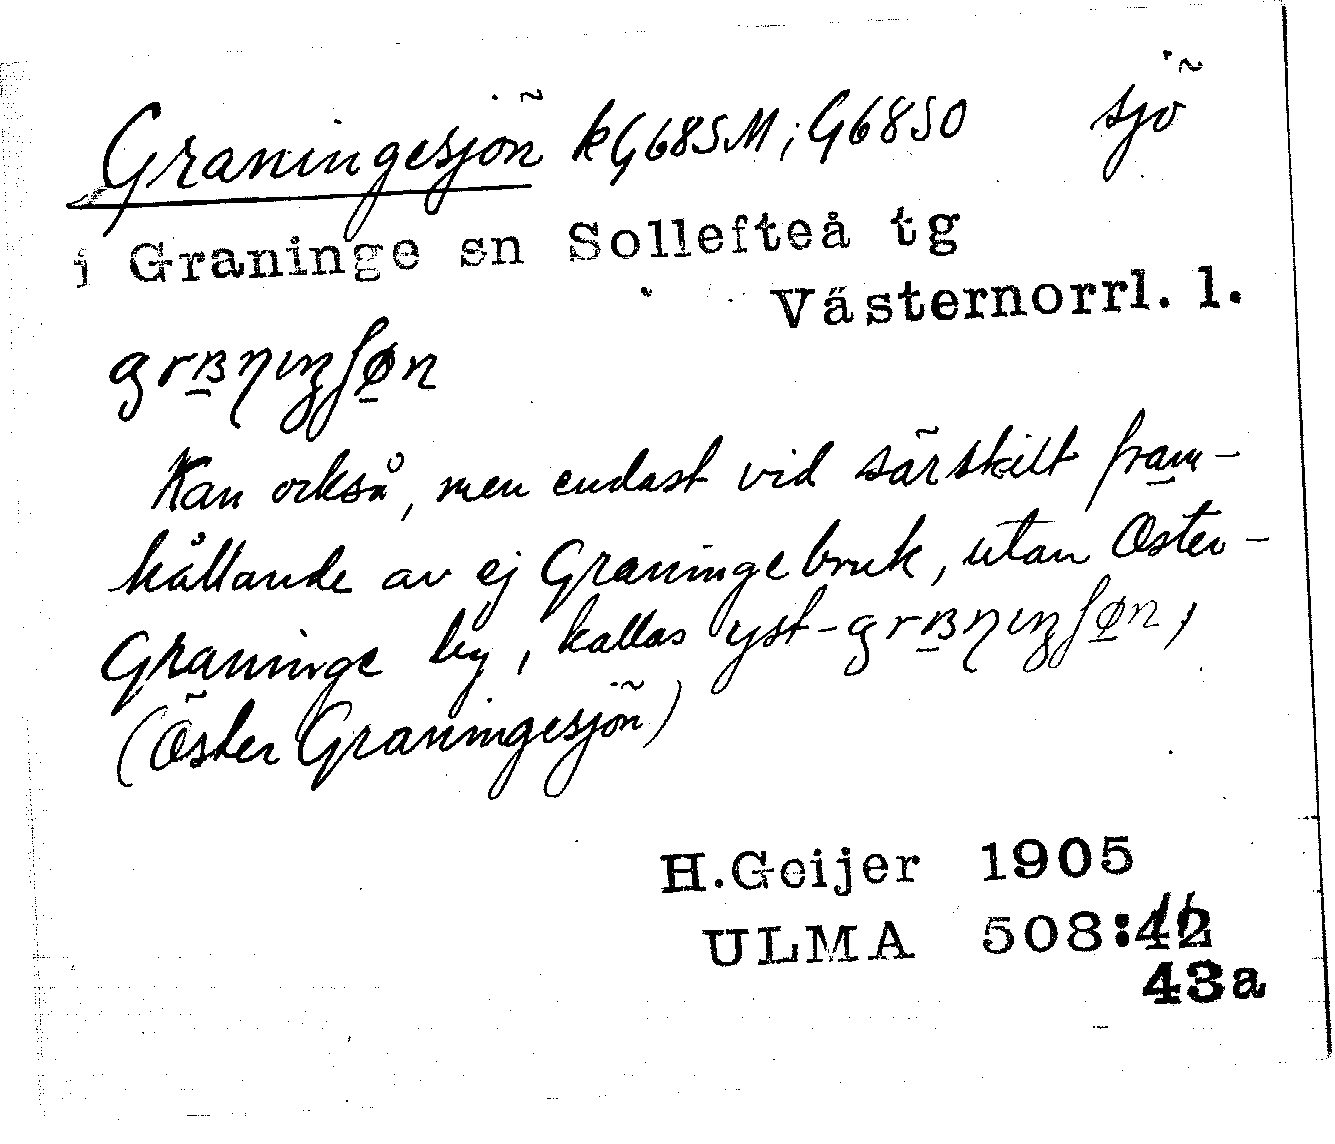 Graningesjön kG685M; G6850 sjö
i Graninge sn Sollefteå tg
Västernorrl. l.
Kan också, men endast vid särskilt fram-
hållande av ej Graningebruk, utan Öster-
Graninge by, kallas yst-
(Öster Graningesjön)
H.Geijer 1905
ULMA 508:
43a